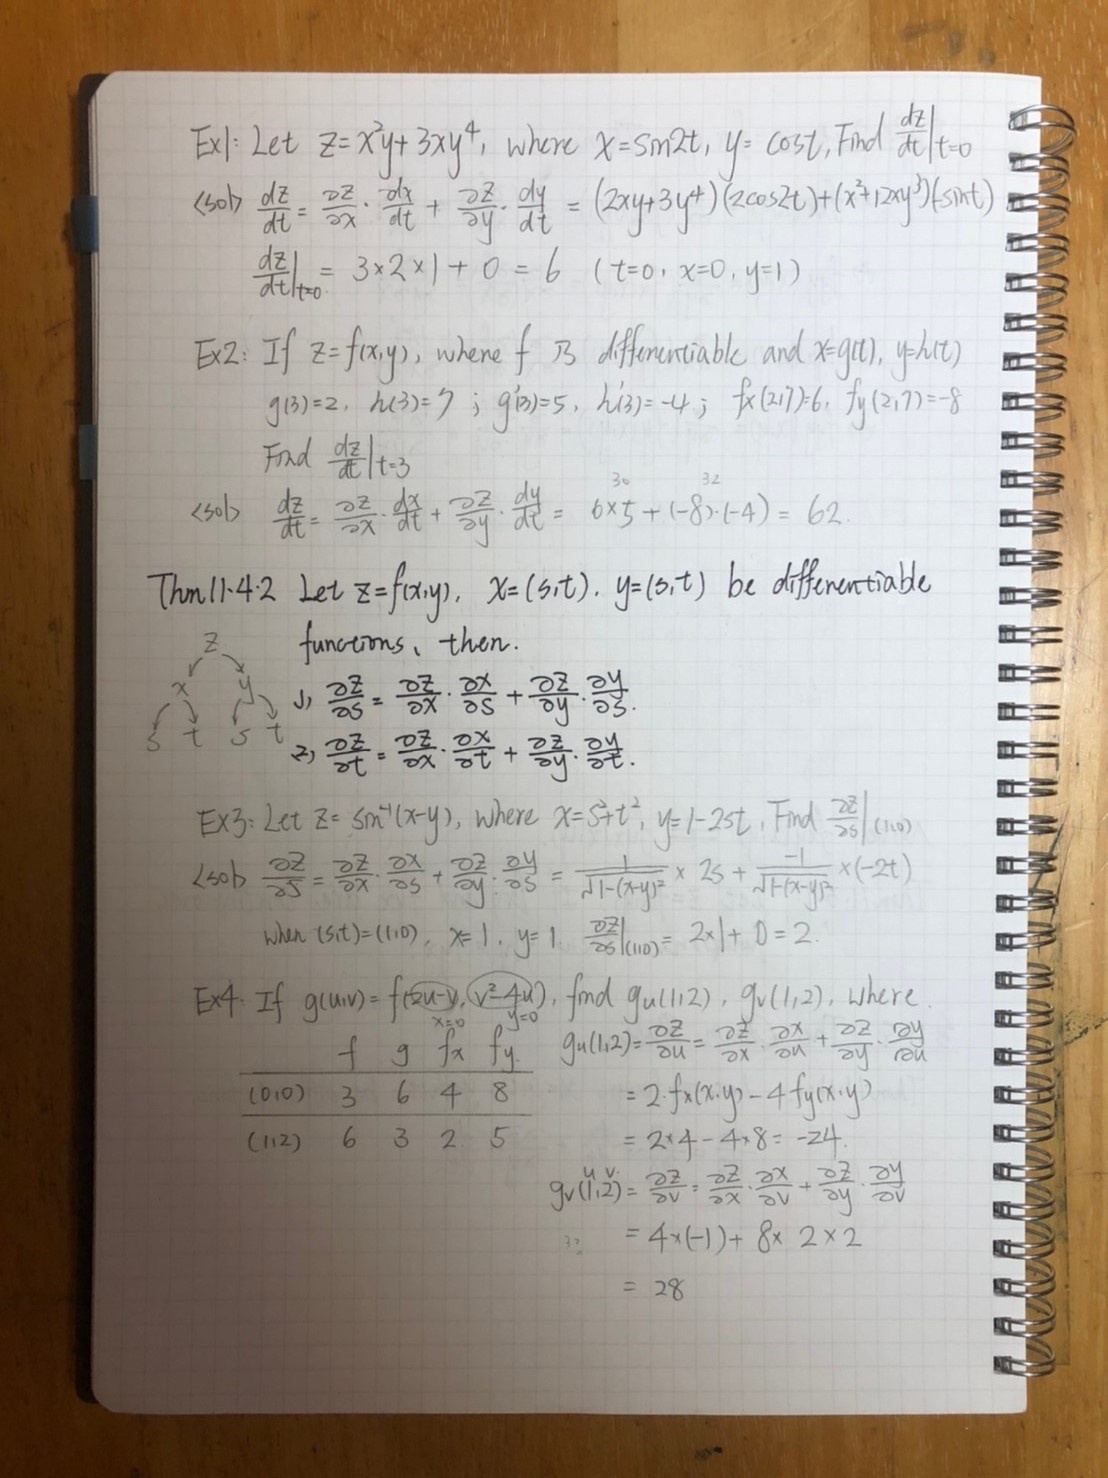 Ex1: Let z=x²y+3xy⁴, where x=sin2t, y=cost, Find dz/dt|t=0
<sol> dz/dt = ∂z/∂x · dx/dt + ∂z/∂y · dy/dt = (2xy+3y⁴)(2cos2t)+(x²+12xy³)(-sint)
dz/dt|t=0 = 3×2×1+0 = 6 (t=0, x=0, y=1)
Ex2: If z=f(x,y), where f is differentiable and x=g(t), y=h(t)
g(3)=2, h(3)=7 ; g'(3)=5, h'(3)=-4 ; fx(2,7)=6, fy(2,7)=-8
Find dz/dt|t=3
30 32
<sol> dz/dt = ∂z/∂x · dx/dt + ∂z/∂y · dy/dt = 6×5+(-8)·(-4) = 62.
Thm 11.4.2 Let z=f(x,y), x=(s,t), y=(s,t) be differentiable
functions, then.
z
x y
s t s t
1) ∂z/∂s = ∂z/∂x · ∂x/∂s + ∂z/∂y · ∂y/∂s.
2) ∂z/∂t = ∂z/∂x · ∂x/∂t + ∂z/∂y · ∂y/∂t.
Ex3: Let z=sin⁻¹(x-y), where x=s²+t², y=1-2st, Find ∂z/∂s|(1,0)
<sol> ∂z/∂s = ∂z/∂x · ∂x/∂s + ∂z/∂y · ∂y/∂s = 1/√(1-(x-y)²) × 2s + -1/√(1-(x-y)²) ×(-2t)
when (s,t)=(1,0), x=1, y=1 ∂z/∂s|(1,0) = 2×1+0=2.
Ex4: If g(u,v)=f(2u-v, v²-4u), find gu(1,2), gv(1,2), where.
x=0 y=0
f g fx fy
(0,0) 3 6 4 8
(1,2) 6 3 2 5
gu(1,2)= ∂z/∂u = ∂z/∂x · ∂x/∂u + ∂z/∂y · ∂y/∂u
= 2·fx(x,y)-4fy(x,y)
= 2×4-4×8=-24.
u v
gv(1,2)= ∂z/∂v = ∂z/∂x · ∂x/∂v + ∂z/∂y · ∂y/∂v
= 4×(-1)+ 8× 2×2
32
= 28